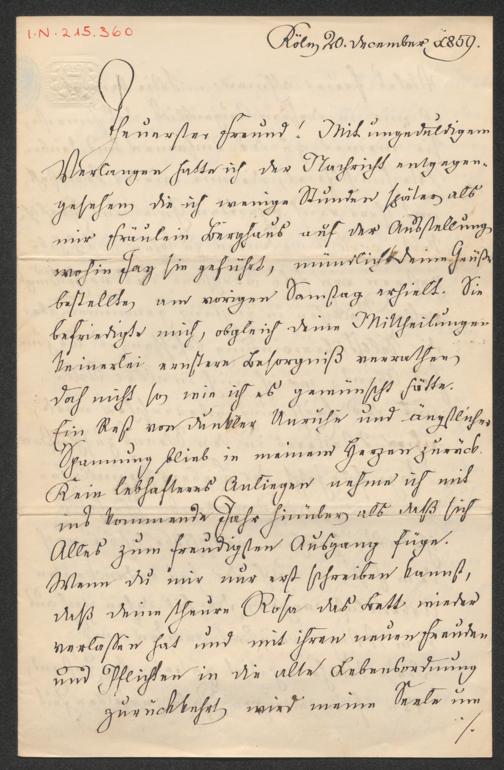 I.N. 215.360
Köln, 20. December 1859.
Theuerster Freund! Mit ungeduldigem
Verlangen hatte ich der Nachricht entgegen-
gesehen, die ich wenige Stunden später, als
mir Fräulein Berghaus auf der Ausstellung,
wohin sie geführt, mündlich Deine Grüße
bestellte, am vorigen Samstag erhielt. Sie
befriedigte mich, obgleich Deine Mittheilungen
keinerlei ernstere Besorgniß verrathen,
doch nicht so, wie ich es gewünscht hätte.
Ein Rest von dunkler Unruhe und ängstlicher
Spannung blieb in meinem Herzen zurück.
Kein lebhafteres Anliegen nehme ich mit
ins kommende Jahr hinüber, als daß sich
Alles zum freudigsten Ausgang füge.
Wenn Du mir nur erst schreiben kannst,
daß Deine theure Rosa das Bett wieder
verlassen hat und mit ihren neuen Freuden
und Pflichten in die alte Lebensordnung
zurückkehrt, wird meine Seele um
./.